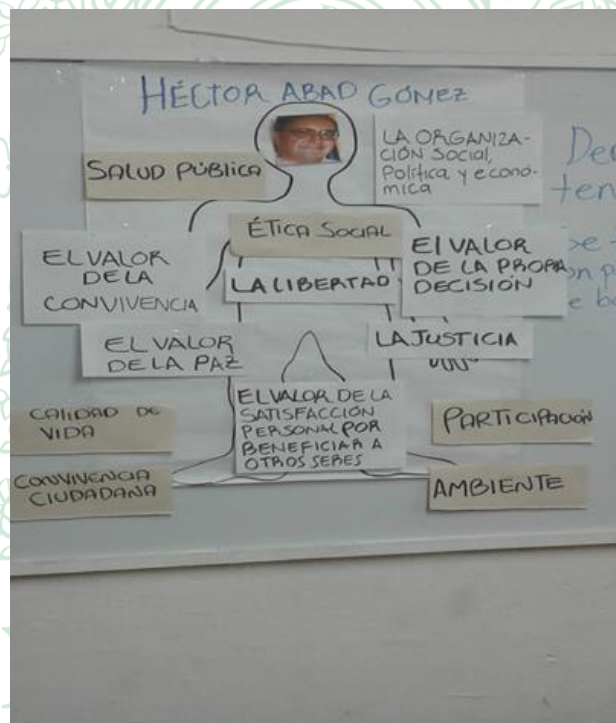 HÉCTOR ABAD GÓMEZ
SALUD PÚBLICA
LA ORGANIZA-
CIÓN SOCIAL,
Política y econó-
mica
ÉTICA SOCIAL
EL VALOR
DE LA
CONVIVENCIA
LA LIBERTAD
El VALOR
DE LA PROPIA
DECISIÓN
EL VALOR
DE LA PAZ
LA JUSTICIA
EL VALOR DE LA
SATISFACCIÓN
PERSONAL POR
BENEFICIAR A
OTROS SERES
CALIDAD DE
VIDA
PARTICIPACIÓN
CONVIVENCIA
CIUDADANA
AMBIENTE